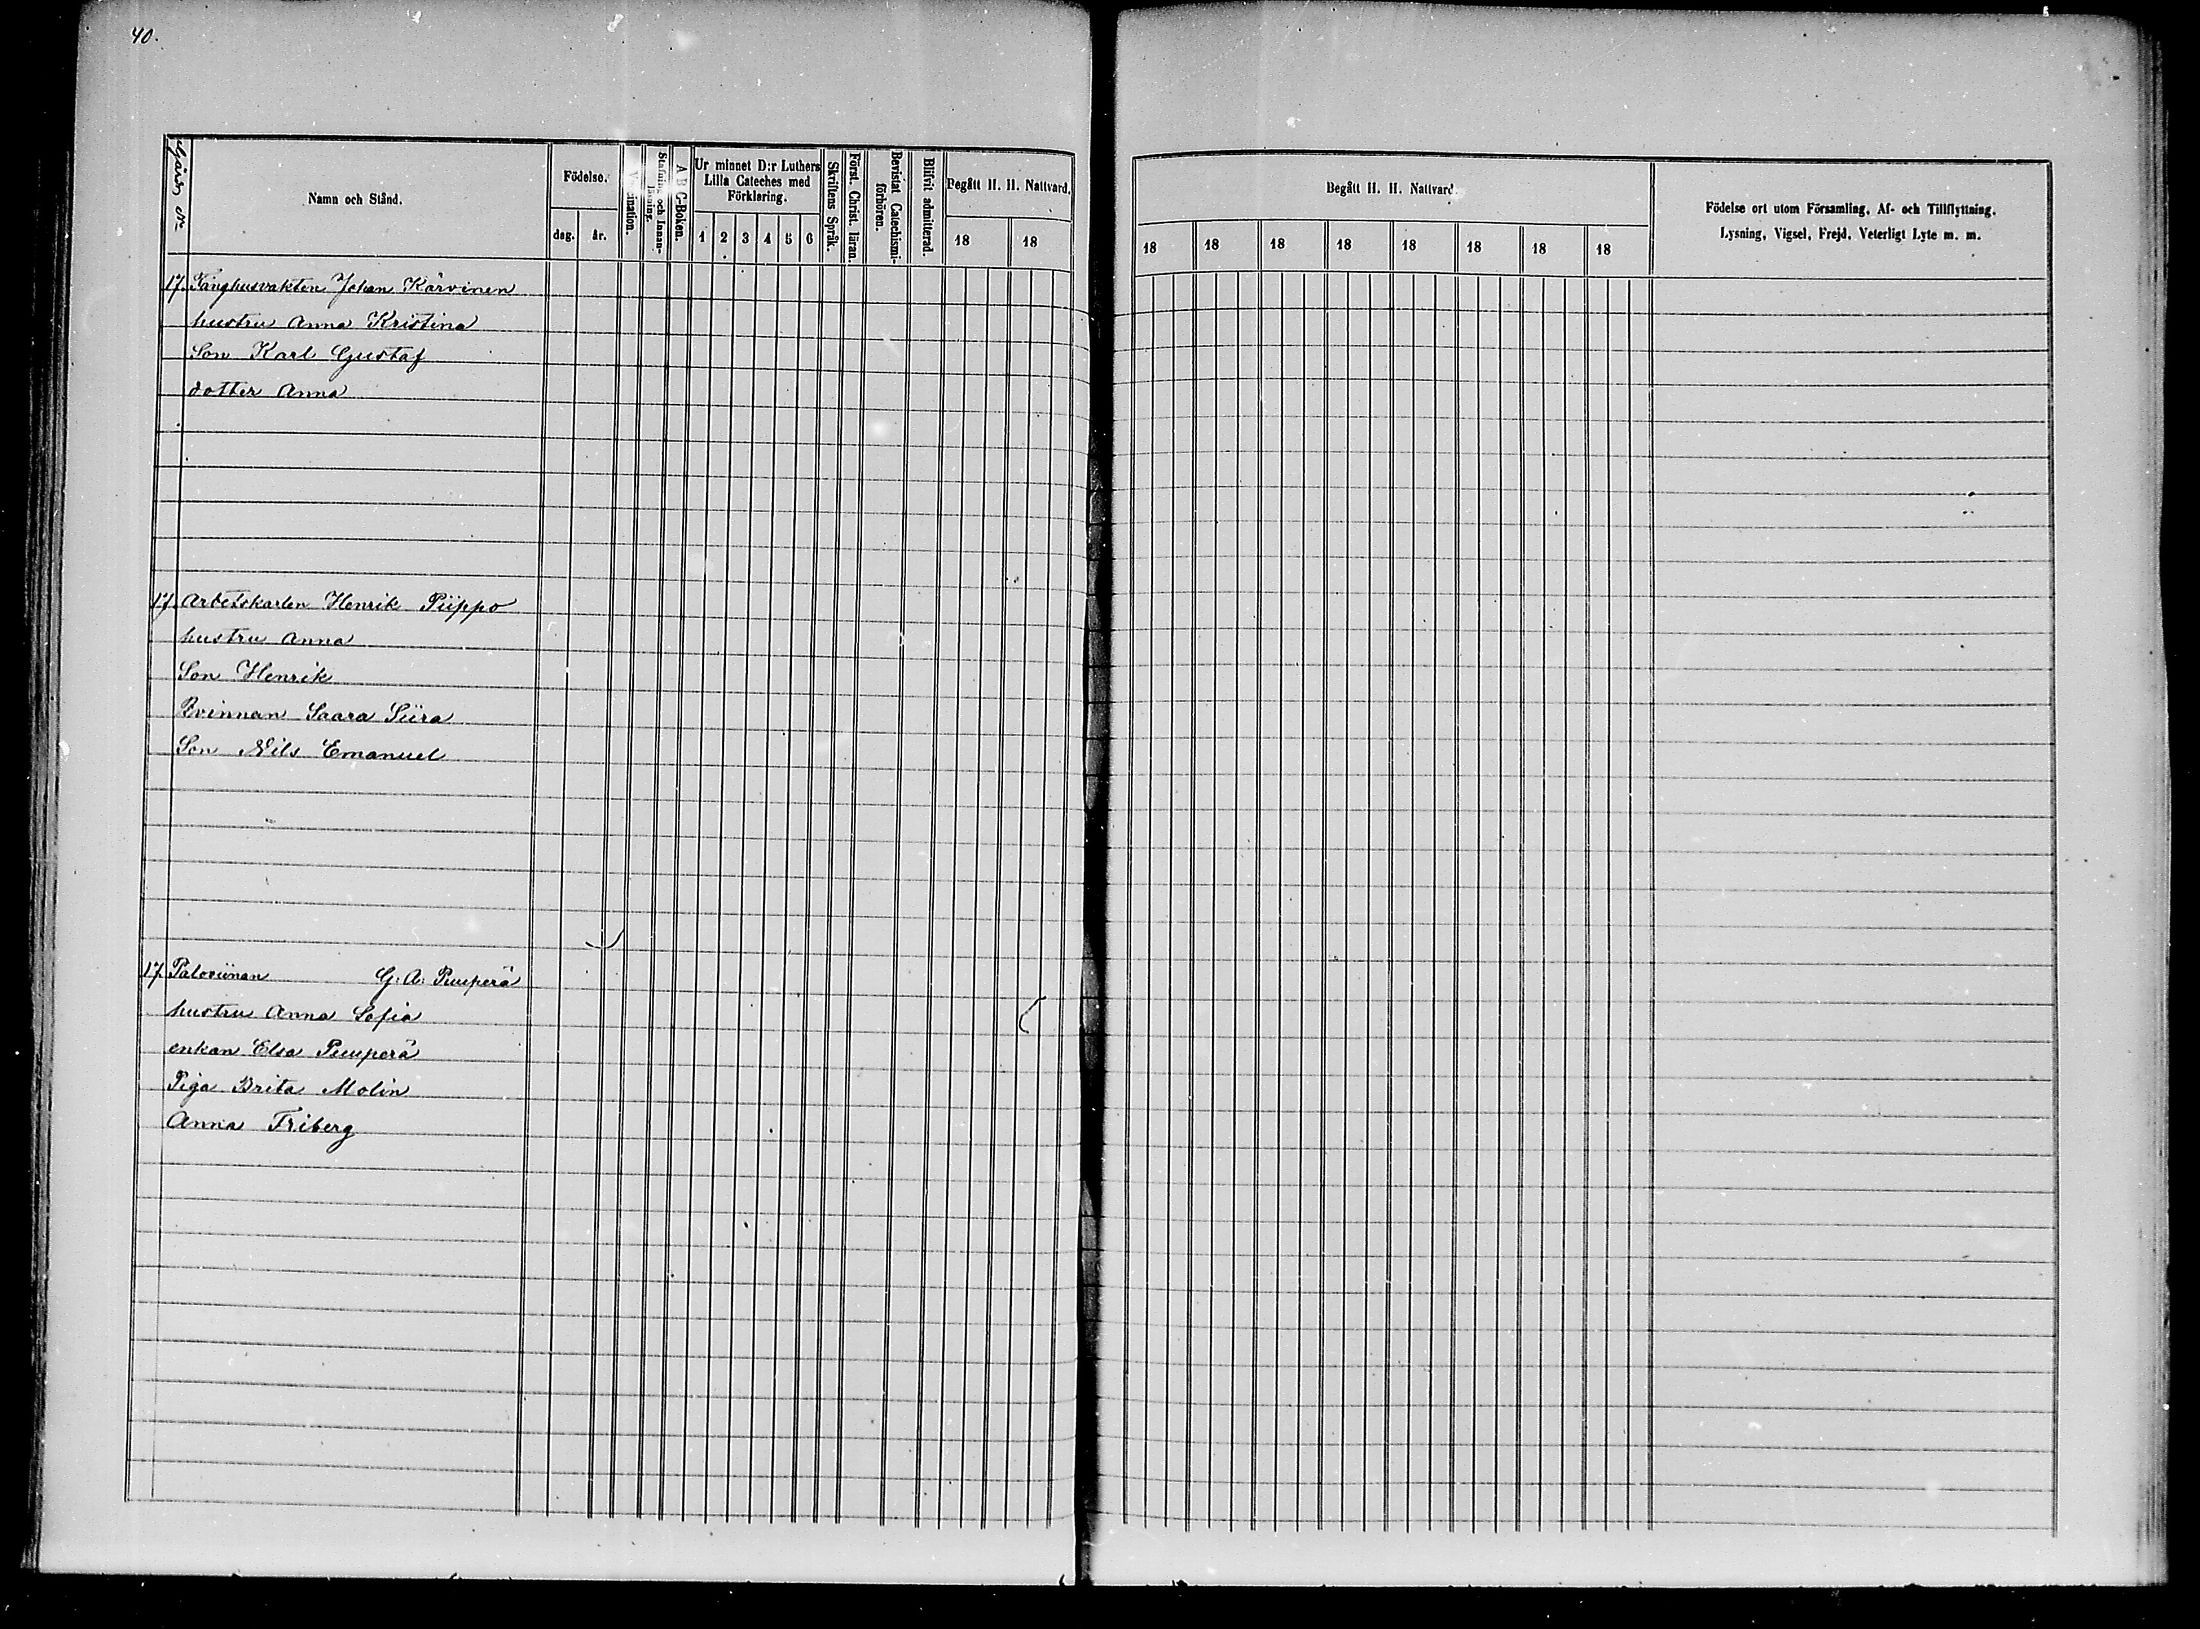 40.
Gårds No
Namn och Stånd.
Födelse.
dag. år.
Vaccination.
Stafning och Innanläsning.
A B C-Boken.
Ur minnet D:r Luthers
Lilla Cateches med
Förklaring.
1 2 3 4 5 6
Skriftens Språk.
Först. Christ. läran.
Bevistat Catechismi-
förhören.
Blifvit admitterad.
Begått H. H. Nattvard.
18 18
Begått H. H. Nattvard.
18 18 18 18 18 18 18 18
Födelse ort utom Församling, Af- och Tillflyttning,
Lysning, Vigsel, Frejd, Veterligt Lyte m. m.
17. Fånghusvakten Johan Kärvinen
hustru Anna Kristina
Son Karl Gustaf
dotter Anna
17. Arbetskarlen Henrik Piippo
hustru Anna
Son Henrik
Kvinnan Saara Siira
Son Nils Emanuel
17. G: A: Puuperä
hustru Anna Sofia
enkan Elsa Puuperä
Piga Brita Molin
Anna Friberg